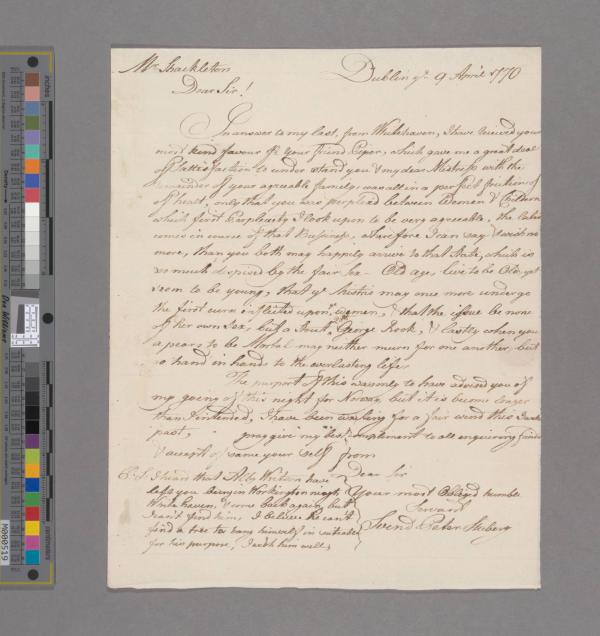 Mr Shackleton
Dublin ye 9 April 1770
Dear Sir!
In answer to my last, from Whitehaven, I have received your
most kind favour pr your friend, which gave me a great deal
of Sattisfaction to understand you & my dear Mistress with the
remainder of your agreeable family was all in a perfect fruition of
of heart, only that you was perplexed between Women &
which first Perplexity I look upon to be very agreeable, the latter
comes in course of that Bussiness, wherefore I can say & wish no
more, than you both may happily arrive to that State, which is
so much despised by the fair Sex - Old age, live to be Old, yet
seem to be young, that ye Mistris may once more undergo
the first curse inflicted upon women, & that the issue be none
of her own Sex, but a George Rook, & lastly when you
apears to be Mortal may neither murn for one another, but
go hand in hand to the everlasting life.
The purport of this was only to have advised you of
my going of this night for Norway but it is become longer
than I intended, I have been waiting for a fair wind this
past, pray give my best complement to all enquiring friends
& accept of same your self from
Dear Sir
Your most Obliged humble
Servant
Svend Peter
P.S. I hear that have
left you Workington
Whitehaven, & come back again but
can't find him, I believe he can't
find a tree to hang himself in suitable
for his purpose, I wish him well.
inches
centimeters
Density
M000519